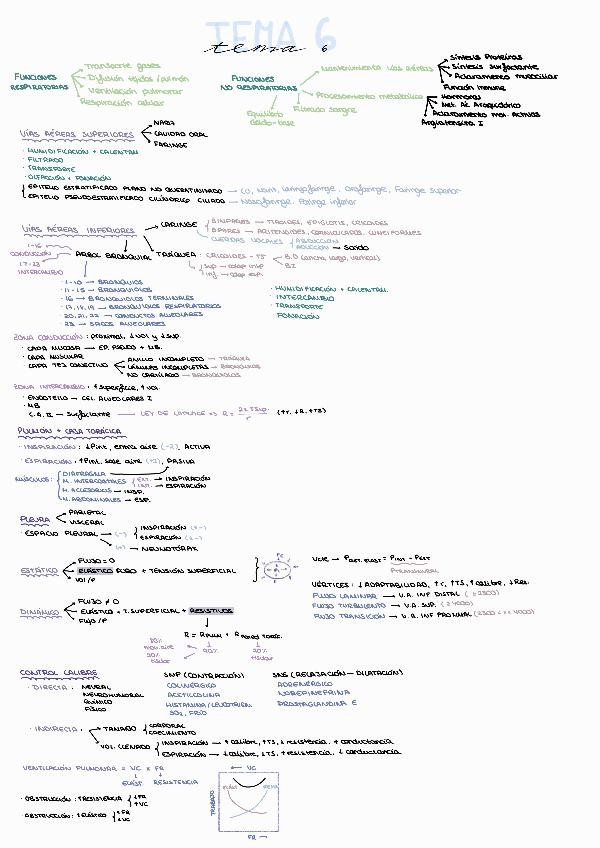 TEMA 6
tema 6
FUNCIONES RESPIRATORIAS
Transporte gases
Difusión tejidos/pulmón
Ventilación pulmonar
Respiración celular
FUNCIONES NO RESPIRATORIAS
Mantenimiento vías aéreas
Síntesis Proteínas
Síntesis surfactante
Aclaramiento mucociliar
Función inmune
Procesamiento metabólico
Hormonas
Met. Ac Araquidónico
Aclaramiento mol. Activas
Angiotensina I
Filtrado sangre
Equilibrio ácido-base
VÍAS AÉREAS SUPERIORES
NARIZ
CAVIDAD ORAL
FARINGE
· HUMIDIFICACIÓN + CALENTAM.
· FILTRADO
· TRANSPORTE
· OLFACIÓN + FONACIÓN
EPITELIO ESTRATIFICADO PLANO NO QUERATINIZADO → CO, Nariz, laringofaringe, Orofaringe, Faringe superior
EPITELIO PSEUDOESTRATIFICADO CILÍNDRICO CILIADO → Nasofaringe, Faringe inferior
VÍAS AÉREAS INFERIORES
LARINGE
3 IMPARES → TIROIDES, EPIGLOTIS, CRICOIDES
3 PARES → ARITENOIDES, CORNICULADOS, CUNEIFORMES
CUERDAS VOCALES
ABDUCCIÓN
ADUCCIÓN → Sonido
TRÁQUEA
CRICOIDES - T5
B.D (ancho, largo, vertical)
B.I
sup → colap insp
inf → colap esp.
1-16 CONDUCCIÓN
17-23 INTERCAMBIO
ÁRBOL BRONQUIAL
· 1-10 → BRONQUIOS
· 11-15 → BRONQUIOLOS
· 16 → BRONQUIOLOS TERMINALES
· 17,18,19 → BRONQUIOLOS RESPIRATORIOS
· 20,21,22 → CONDUCTOS ALVEOLARES
· 23 → SACOS ALVEOLARES
· HUMIDIFICACIÓN + CALENTAM.
· INTERCAMBIO
· TRANSPORTE
· FONACIÓN
ZONA CONDUCCIÓN: proximal, ↓vol y ↓sup.
· CAPA MUCOSA → EP. PSEUDO + MB.
· CAPA MUSCULAR
· CAPA TEJ CONECTIVO
ANILLO INCOMPLETO → TRÁQUEA
LÁMINAS INCOMPLETAS → BRONQUIOS
NO CARTÍLAGO → BRONQUIOLOS
ZONA INTERCAMBIO: ↑superficie, ↑vol.
· ENDOTELIO → CEL. ALVEOLARES I
· MB
· C.A. II → Surfactante → LEY DE LAPLACE => P = 2xTSup / r (↑r, ↓P, ↑TS)
PULMÓN + CAJA TORÁCICA
· INSPIRACIÓN: ↓Pint, entra aire (-2), ACTIVA
· ESPIRACIÓN: ↑Pint, sale aire (+2), PASIVA
MÚSCULOS:
DIAFRAGMA
M. INTERCOSTALES
EXT. → INSPIRACIÓN
INT. → ESPIRACIÓN
M. ACCESORIOS → INSP.
M. ABDOMINALES → ESP.
PLEURA
PARIETAL
VISCERAL
· ESPACIO PLEURAL
(-)
INSPIRACIÓN
ESPIRACIÓN
(+) → NEUMOTÓRAX
ESTÁTICO
FLUJO = 0
ELÁSTICO PURO + TENSIÓN SUPERFICIAL
VOL/P
DINÁMICO
FLUJO ≠ 0
ELÁSTICO + T. SUPERFICIAL + RESISTIVOS
FLUJO/P
R = RPULM + RPARED TORÁC.
80% RES. AIRE
20% tisular
80%
20% tisular
VÉRTICES: ↓ADAPTABILIDAD, ↑r, ↑TS, ↑calibre, ↓Res.
FLUJO LAMINAR → V.A. INF DISTAL
FLUJO TURBULENTO → V.A. SUP.
FLUJO TRANSICIÓN → V.A. INF PROXIMAL
CONTROL CALIBRE
SNP (CONTRACCIÓN)
SNS (RELAJACIÓN - DILATACIÓN)
· DIRECTA:
NEURAL
COLINÉRGICA
ADRENÉRGICO
NEUROHUMORAL
ACETILCOLINA
NOREPINEFRINA
QUÍMICO
HISTAMINA/LEUCOTRIEN
PROSTAGLANDINA E
FÍSICO
SO2, FRÍO
· INDIRECTA:
TAMAÑO
CORPORAL
CRECIMIENTO
VOL. LLENADO
INSPIRACIÓN → ↑calibre, ↑TS, ↓resistencia, ↑conductancia
ESPIRACIÓN → ↓calibre, ↓TS, ↑resistencia, ↓conductancia
VENTILACIÓN PULMONAR = VC x FR
ELÁST RESISTENCIA
· OBSTRUCCIÓN: ↑RESISTENCIA
↓FR
↑VC
· OBSTRUCCIÓN: ↑ELÁSTICO
↑FR
↓VC
← VC
TRABAJO
FR →